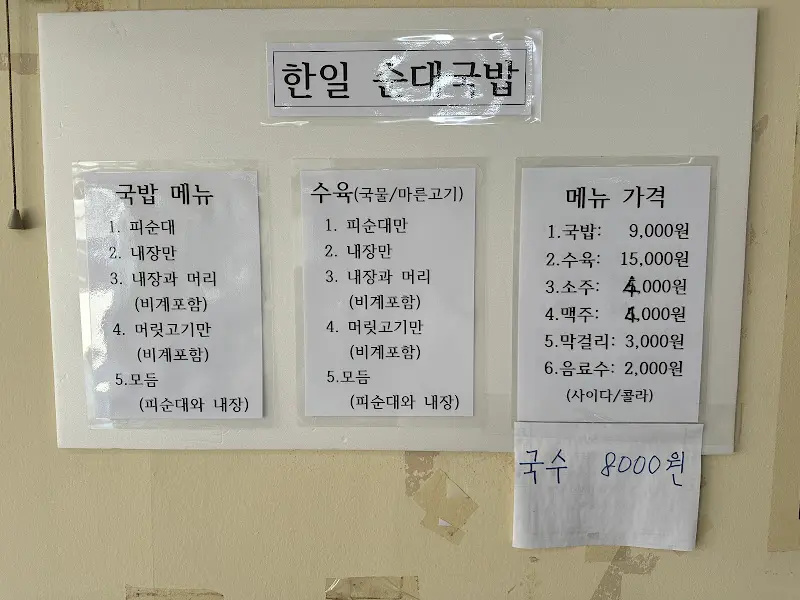 한일 순대국밥
국밥 메뉴
1. 피순대
2. 내장만
3. 내장과 머리
(비계포함)
4. 머릿고기만
(비계포함)
5.모듬
(피순대와 내장)
수육(국물/마른고기)
1. 피순대만
2. 내장만
3. 내장과 머리
(비계포함)
4. 머릿고기만
(비계포함)
5.모듬
(피순대와 내장)
메뉴 가격
1.국밥: 9,000원
2.수육: 15,000원
3.소주: 4,000원
4.맥주: 4,000원
5.막걸리: 3,000원
6.음료수: 2,000원
(사이다/콜라)
국수 8000원